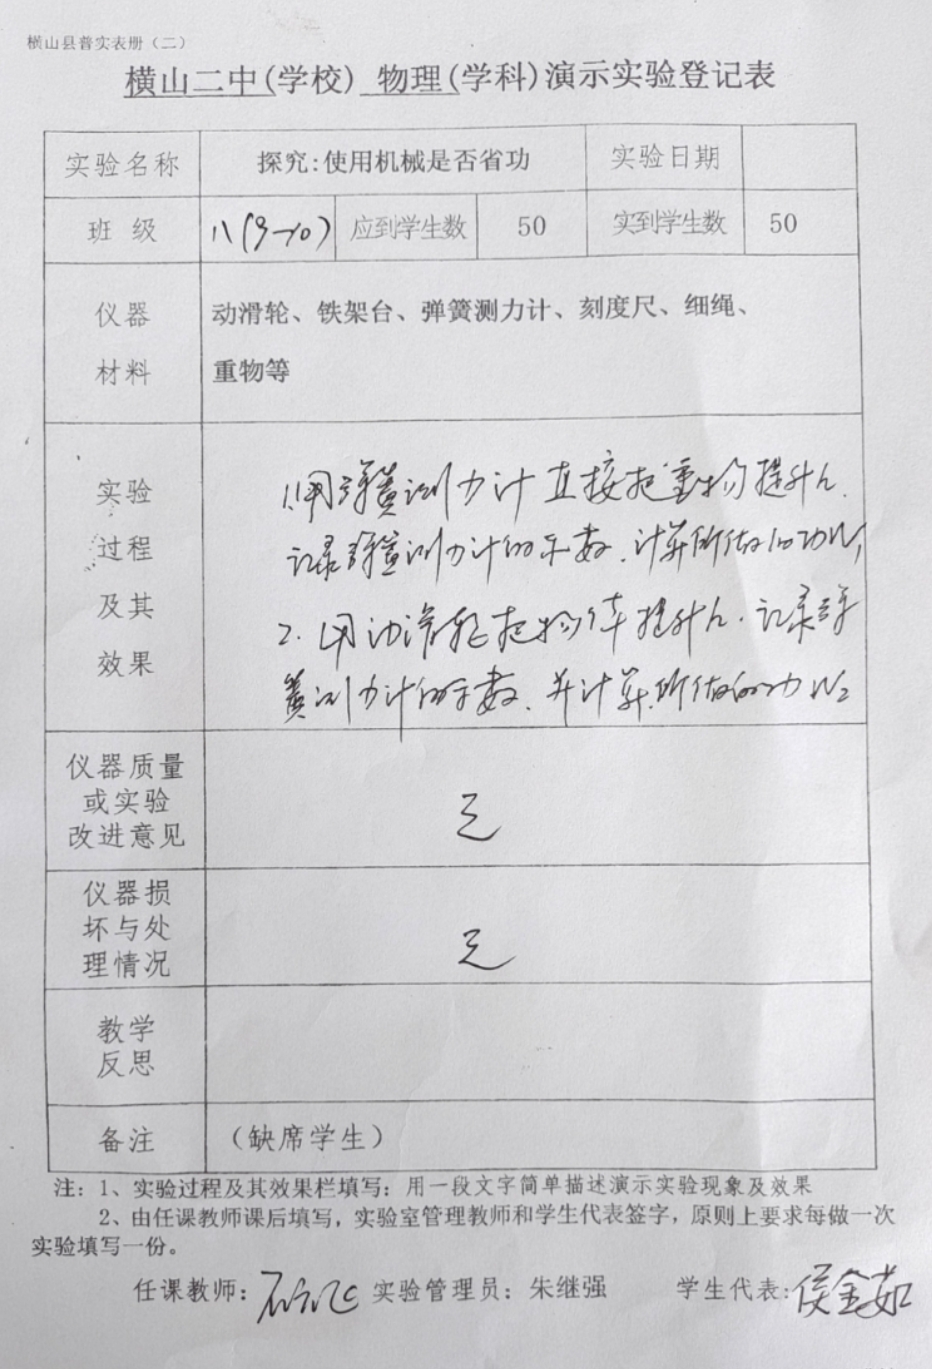 横山县普实表册（二）
横山二中(学校) 物理(学科)演示实验登记表
实验名称 探究:使用机械是否省功 实验日期
班 级 八(9-10) 应到学生数 50 实到学生数 50
仪器 动滑轮、铁架台、弹簧测力计、刻度尺、细绳、
材料 重物等
实验 1.用弹簧测力计直接把重物提升h.
过程 记录弹簧测力计的示数.计算所做的功W1
及其 2.用动滑轮把物体提升h.记录弹
效果 簧测力计的示数.并计算所做的功W2
仪器质量
或实验
改进意见
无
仪器损
坏与处
理情况
无
教学
反思
备注 （缺席学生）
注：1、实验过程及其效果栏填写：用一段文字简单描述演示实验现象及效果
2、由任课教师课后填写，实验室管理教师和学生代表签字，原则上要求每做一次
实验填写一份。
任课教师: 实验管理员：朱继强 学生代表:侯金茹